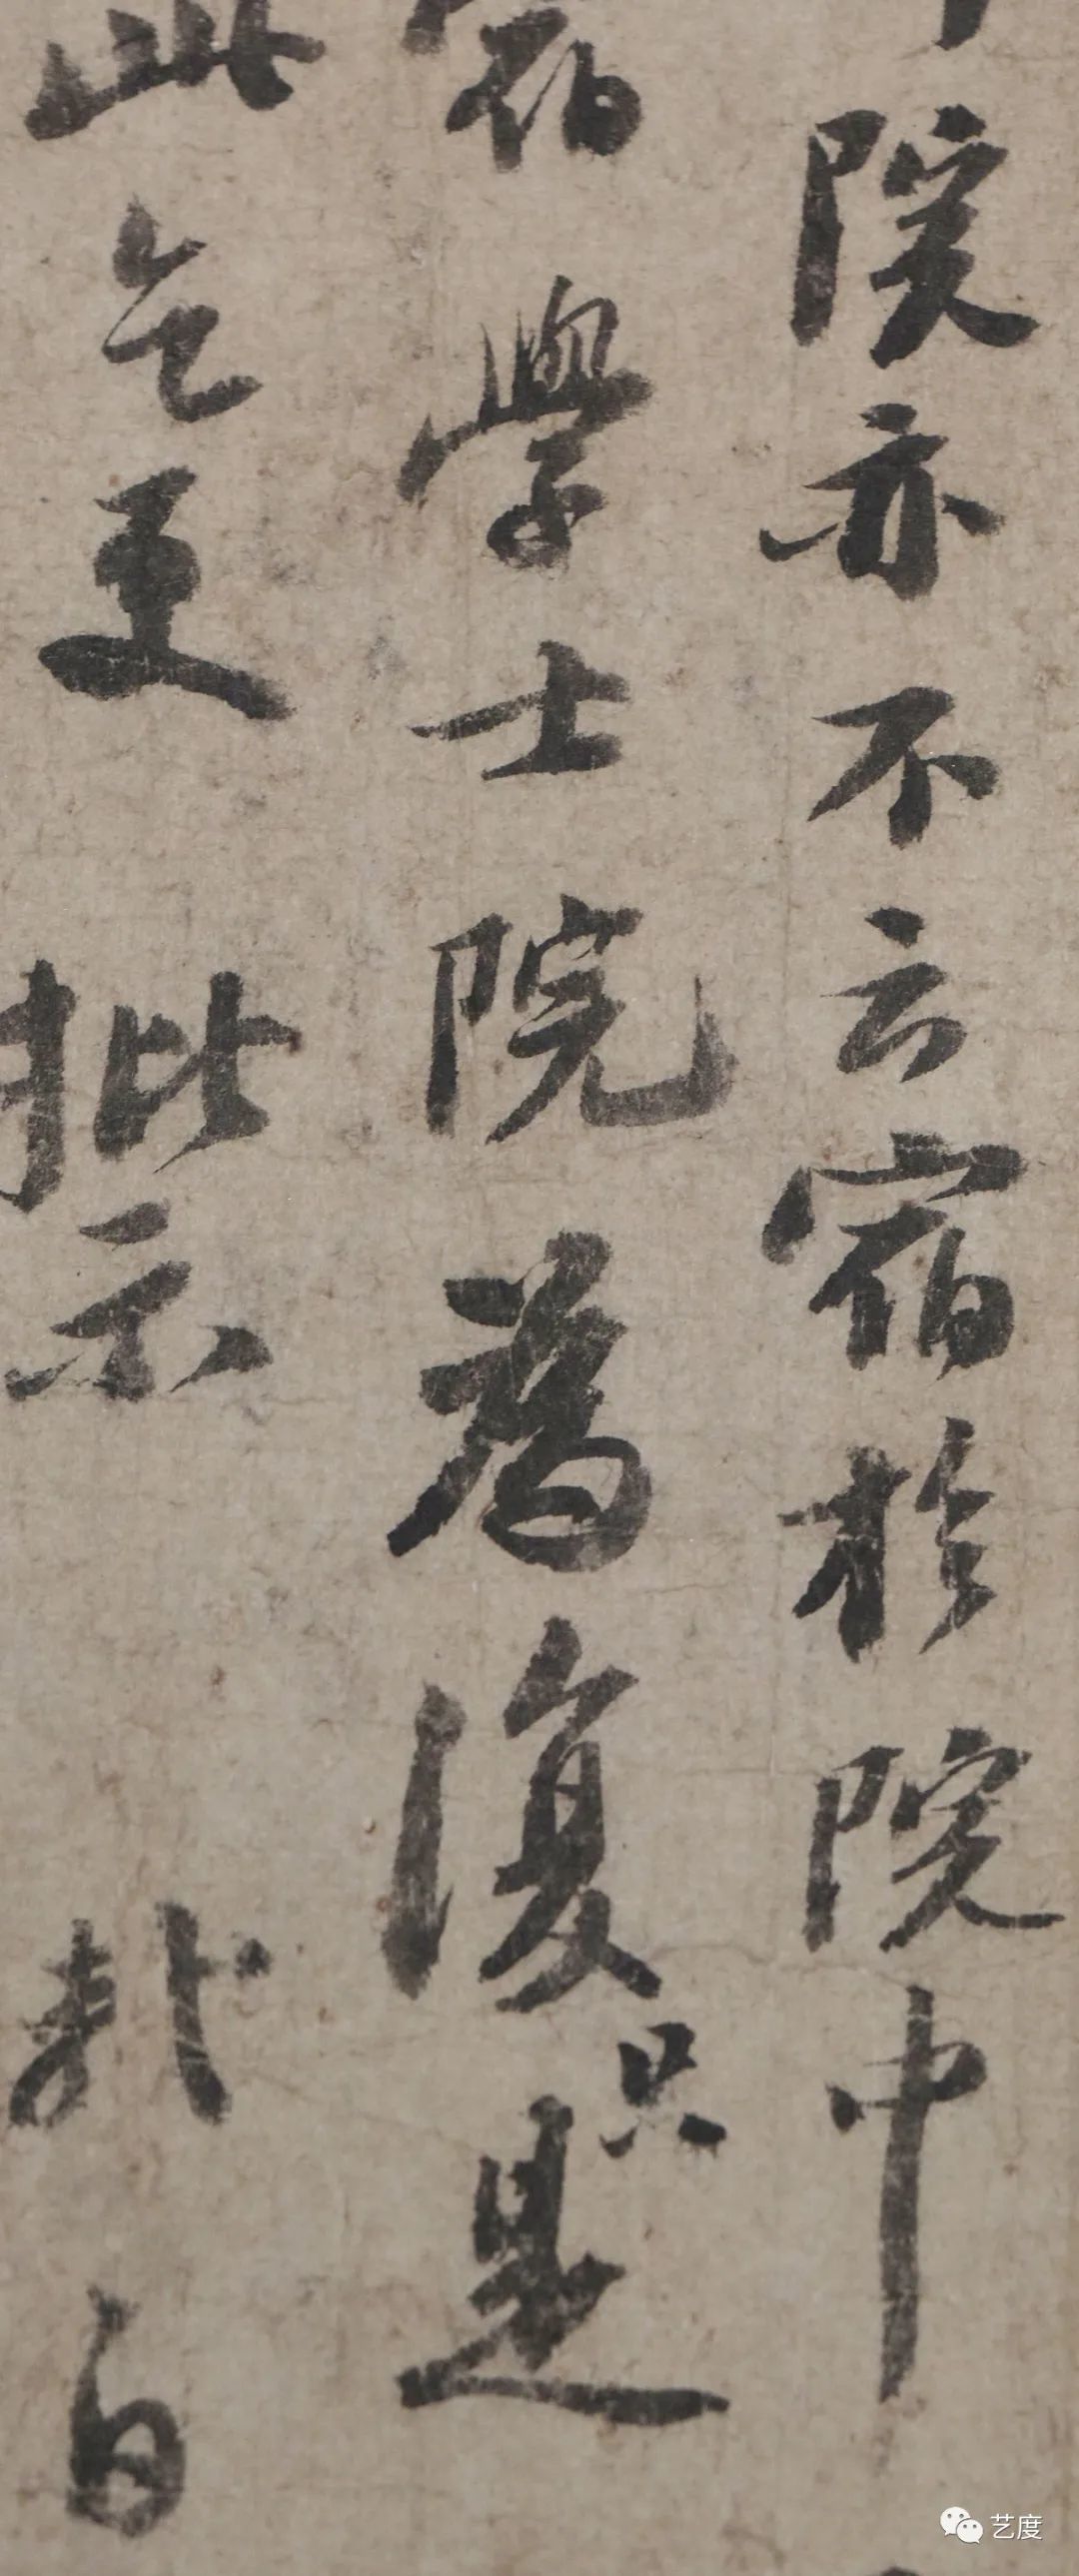 院亦不云宿於院中
宿學士院為復只是
此乞更 批示 軾白
艺度